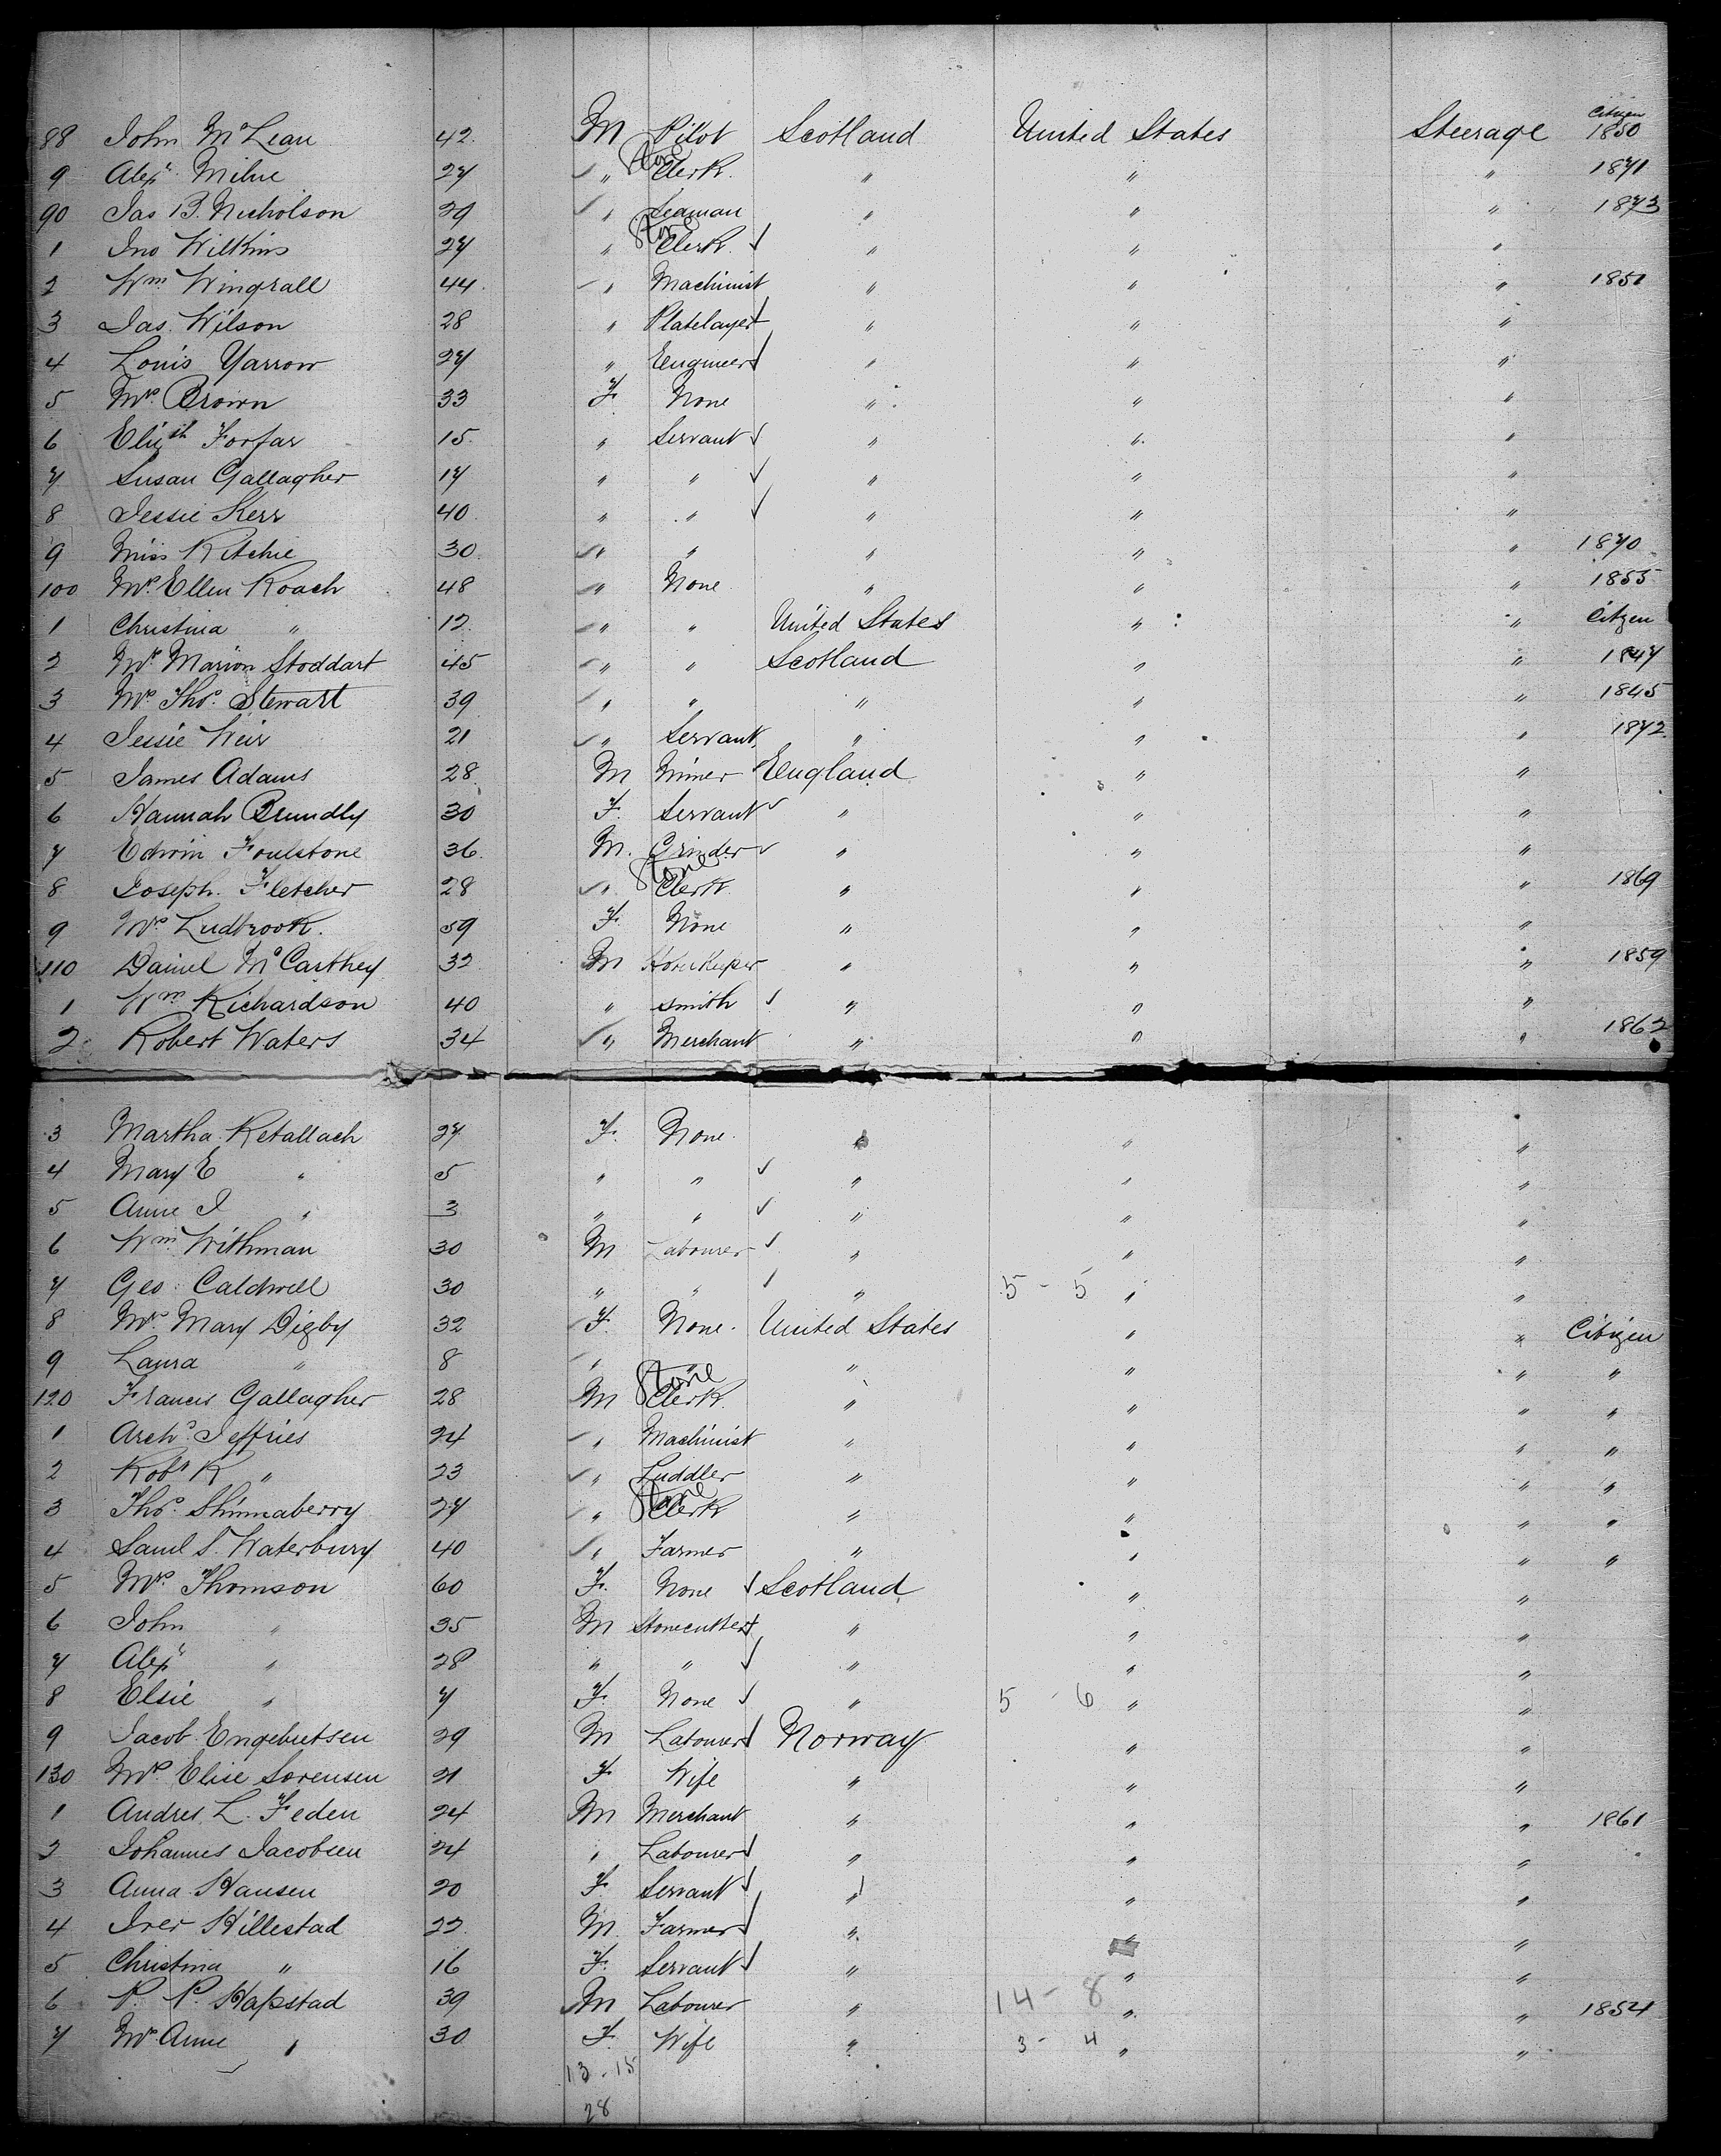 88 John McLean 42 M Pilot Scotland United States Steerage Citizen 1850
9 Alexr Milne 27 " Store Clerk " " " 1871
90 Jas B. Nicholson 29 " Seaman " " " 1873
1 Jno Wilkins 27 " Store Clerk " " "
2 Wm Wingrall 44 " Machinist " " " 1851
3 Jas. Wilson 28 " Platelayer " " "
4 Louis Yarrow 27 " Engineer " " "
5 Mrs. Brown 33 F None " " "
6 Elizth Forfar 15 " Servant " " "
7 Susan Gallagher 17 " " " " "
8 Jessie Kerr 40 " " " " "
9 Miss Ritchie 30 " " " " " 1870
100 Mrs. Ellen Roach 48 " None " " " 1855
1 Christina " 12 " " United States " " Citzen
2 Mrs Marion Stoddart 45 " " Scotland " " 1847
3 Mrs. Thos. Stewart 39 " " " " " 1845
4 Jessie Weir 21 " Servant " " " 1872
5 James Adams 28 M Miner England " "
6 Hannah Brundly 30 F. Servant " " "
7 Edwin Foulstone 36 M. Grinder " " "
8 Joseph. Fletcher 28 " Store Clerk " " " 1869
9 Mrs Ludbrook. 59 F. None " " "
110 Daniel McCarthey 32 M Storekeeper " " " 1859
1 Wm Richardson 40 " Smith " " "
2 Robert Waters 34 " Merchant " " " 1862
3 Martha Retallach 27 F. None. " " "
4 Mary E " 5 " " " " "
5 Anne I " 3 " " " " "
6 Wm. Withman 30 M Labourer " " "
7 Geo. Caldwell 30 " " " 5 - 5 " "
8 Mrs Mary Digby 32 F. None. United States " " Citizen
9 Laura " 8 " " " " " "
120 Francis Gallagher 28 M Store Clerk " " " "
1 Archd Jeffries 24 " Machinist " " " "
2 Robt R " 23 " Puddler " " " "
3 Thos. Shinnaberry 27 " Store Clerk " " " "
4 Saml S. Waterbury 40 " Farmer " " " "
5 Mrs. Thomson 60 F. None Scotland " "
6 John " 35 M Stonecutter " " "
7 Alexr " 28 " " " " "
8 Elsie " 7 F. None " 5 - 6 " "
9 Jacob Engebretsen 29 M Labourer Norway " "
130 Mrs. Elise Sorensen 21 F Wife " " "
1 Andres L. Feden 24 M Merchant " " " 1861
2 Johannes Jacobsen 24 " Labourer " " "
3 Anna Hansen 20 F Servant " " "
4 Iver Hillestad 22 M. Farmer " " "
5 Christina " 16 F. Servant " " "
6 P. P. Hapstad 39 M Labourer " 14 - 8 " " 1854
7 Mrs Anne " 30 F. Wife " 3 - 4 " "
13 - 15
28